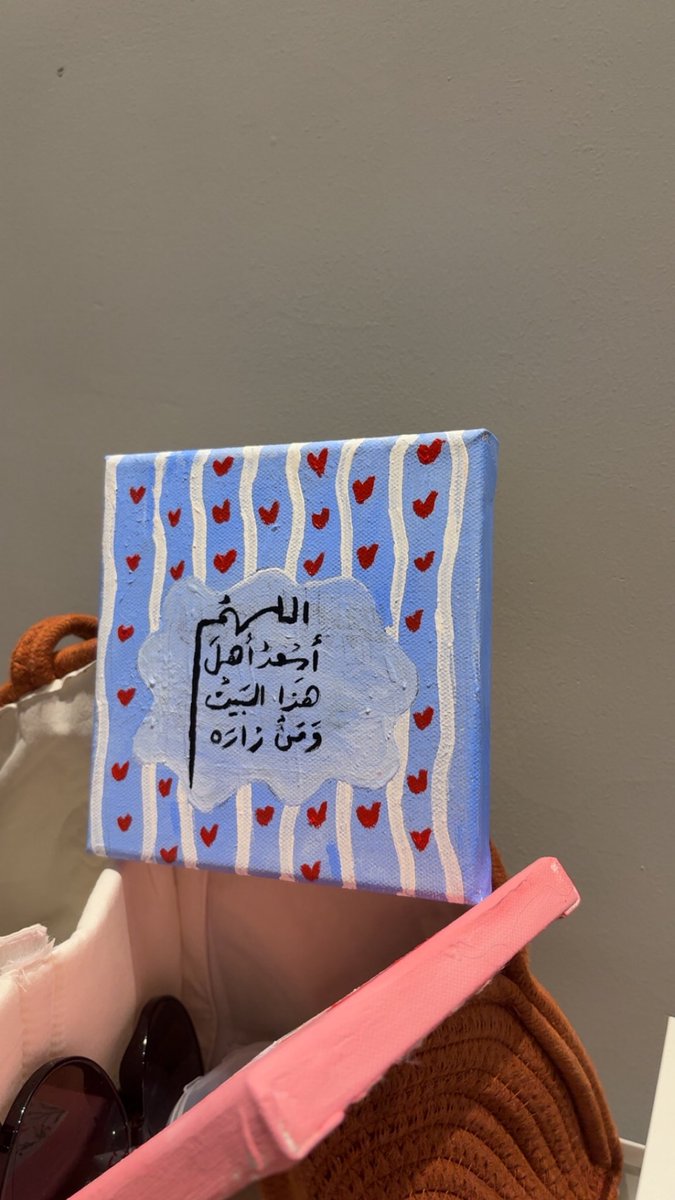 اللهُم
أسعدُ أهلَ
هَذا البَيتْ
وَمَنْ زارَه